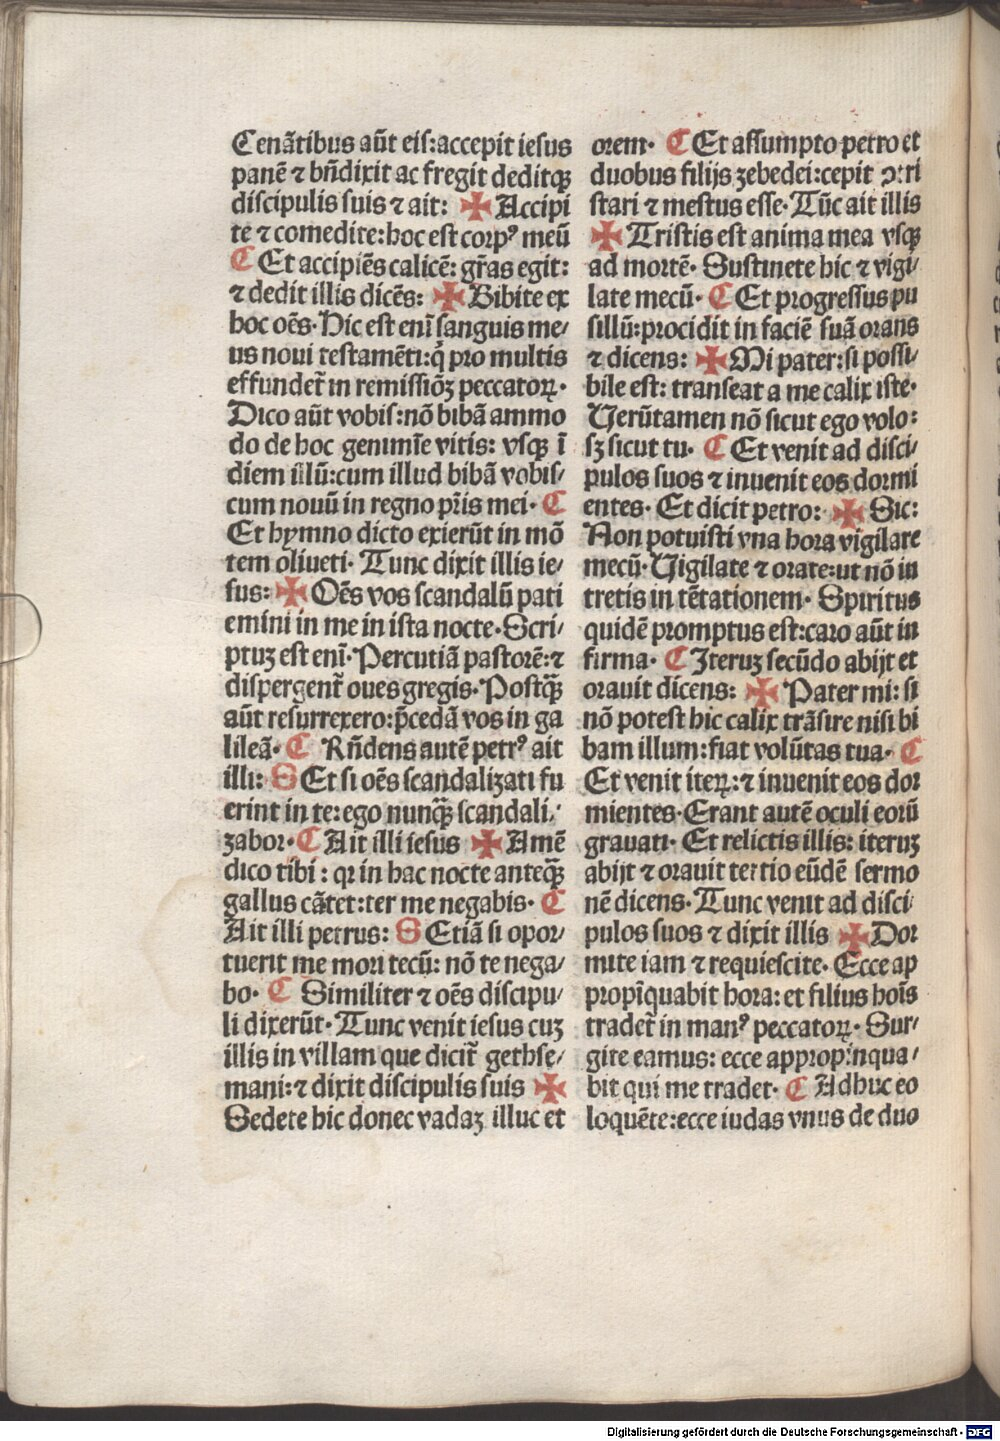 Cenãtibus aũt eis:accepit iesus
panẽ ⁊ bñdixit ac fregit deditqꝫ
discipulis suis ⁊ ait: ✠ Accipi
te ⁊ comedite:hoc est corpꝰ meũ
C Et accipiẽs calicẽ: gr̃as egit:
⁊ dedit illis dicẽs: ✠ Bibite ex
hoc oẽs. Hic est enĩ sanguis me/
us noui testamẽti:q̇ pro multis
effundet᷑ in remissiõꝫ peccatoꝝ.
Dico aũt vobis:nõ bibã ammo
do de hoc genimĩe vitis: vsqꝫ ĩ
diem illũ:cum illud bibã vobis/
cum nouũ in regno pr̃is mei. C
Et hymno dicto exierũt in mõ
tem oliueti. Tunc dixit illis ie/
sus: ✠ Oẽs vos scandalũ pati
emini in me in ista nocte. Scri/
ptuꝫ est enĩ. Percutiã pastorẽ:⁊
dispergent᷑ oues gregis. Postqꝫ̃
aũt resurrexero:p̃cedã vos in ga
lileã. C Rñdens autẽ petrꝰ ait
illi: S Et si oẽs scandalizati fu
erint in te:ego nunqꝫ̃ scandali/
zabor. C Ait illi iesus ✠ Amẽ
dico tibi: qr in hac nocte anteqꝫ̃
gallus cãtet:ter me negabis. C
Ait illi petrus: S Etiã si opor/
tuerit me mori tecũ: nõ te nega/
bo. C Similiter ⁊ oẽs discipu/
li dixerũt. Tunc venit iesus cuꝫ
illis in villam que dicit᷑ gethse/
mani:⁊ dixit discipulis suis ✠
Sedete hic donec vadaꝫ illuc et
orem. C Et assumpto petro et
duobus filijs zebedei:cepit ↄtri
stari ⁊ mestus esse. Tũc ait illis
✠ Tristis est anima mea vsqꝫ
ad mortẽ. Sustinete hic ⁊ vigi/
late mecũ. C Et progressus pu
sillũ:procidit in faciẽ suã orans
⁊ dicens: ✠ Mi pater:si possi/
bile est: transeat a me calix iste.
Uerũtamen nõ sicut ego volo:
sꝫ sicut tu. C Et venit ad disci/
pulos suos ⁊ inuenit eos dormi
entes. Et dicit petro: ✠ Sic:
Non potuisti vna hora vigilare
mecũ. Uigilate ⁊ orate:ut nõ in
tretis in tẽtationem. Spiritus
quidẽ promptus est:caro aũt in
firma. C Iteruꝫ secũdo abijt et
orauit dicens: ✠ Pater mi: si
nõ potest hic calix trãsire nisi bi
bam illum:fiat volũtas tua. C
Et venit iteꝝ:⁊ inuenit eos dor
mientes. Erant autẽ oculi eorũ
grauati. Et relictis illis: iteruꝫ
abijt ⁊ orauit tertio eũdẽ sermo
nẽ dicens. Tunc venit ad disci/
pulos suos ⁊ dixit illis ✠ Dor
mite iam ⁊ requiescite. Ecce ap
propĩquabit hora: et filius hoĩs
tradet᷑ in manꝰ peccatoꝝ. Sur/
gite eamus: ecce appropinqua/
bit qui me tradet. C Adhuc eo
loquẽte:ecce iudas vnus de duo
Digitalisierung gefördert durch die Deutsche Forschungsgemeinschaft - DFG